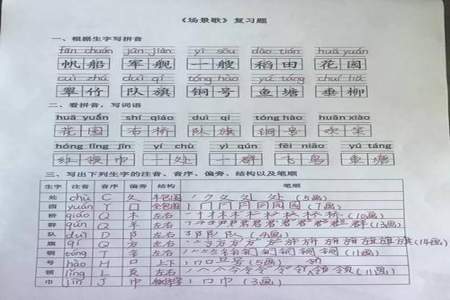 《场景歌》复习题
一、根据生字写拼音
fān chuán jūn jiàn yì sōu dào tián huā yuán
帆船 军舰 一艘 稻田 花园
cuì zhú duì qí tóng hào yú táng chuí liǔ
翠竹 队旗 铜号 鱼塘 垂柳
二、看拼音，写词语
huā yuán shí qiáo duì qí tóng hào huān xiào
花园 石桥 队旗 铜号 欢笑
hóng lǐng jīn yí chù yì qún fēi niǎo yú táng
红领巾 一处 一群 飞鸟 鱼塘
三、写出下列生字的注音、音序、偏旁、结构以及笔顺
生字 注音 音序 偏旁 结构 笔顺
处 chù C 夂 半包围 (5画)
园 yuán Y 囗 全包围 (7画)
桥 qiáo Q 木 左右 (10画)
群 qún Q 羊 左右 (13画)
队 duì D 阝 左右 (4画)
旗 qí Q 方 左右 (14画)
铜 tóng T 钅 左右 (11画)
号 hào H 口 上下 (5画)
领 lǐng L 页 左右 (11画)
巾 jīn J 巾 (3画)